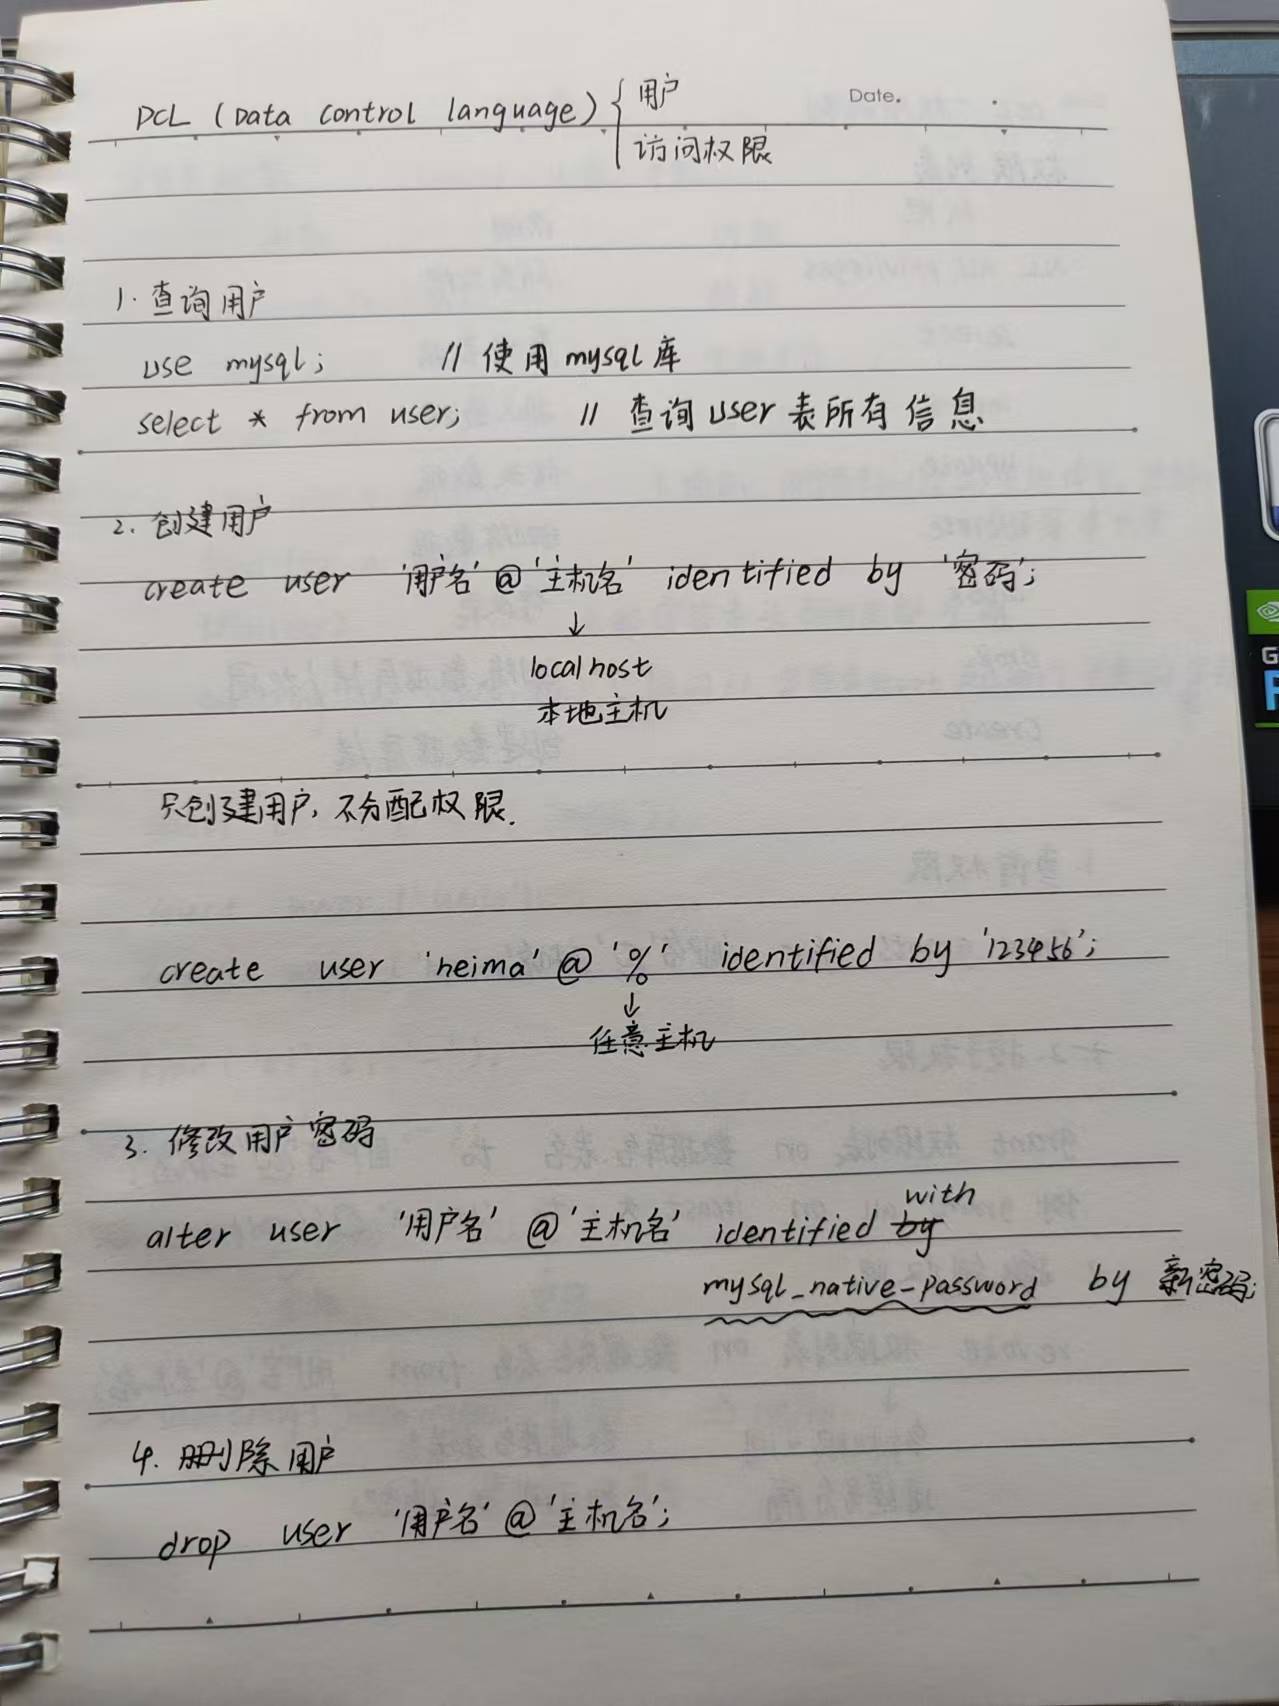 Date.
DCL (Data control language) { 用户
访问权限
1. 查询用户
use mysql; // 使用mysql库
select * from user; // 查询user表所有信息
2. 创建用户
create user '用户名'@'主机名' identified by '密码';
↓
localhost
本地主机
只创建用户,不分配权限.
create user 'heima'@'%' identified by '123456';
↓
任意主机
3. 修改用户密码
with
alter user '用户名'@'主机名' identified by
mysql_native_password by 新密码;
4. 删除用户
drop user '用户名'@'主机名';